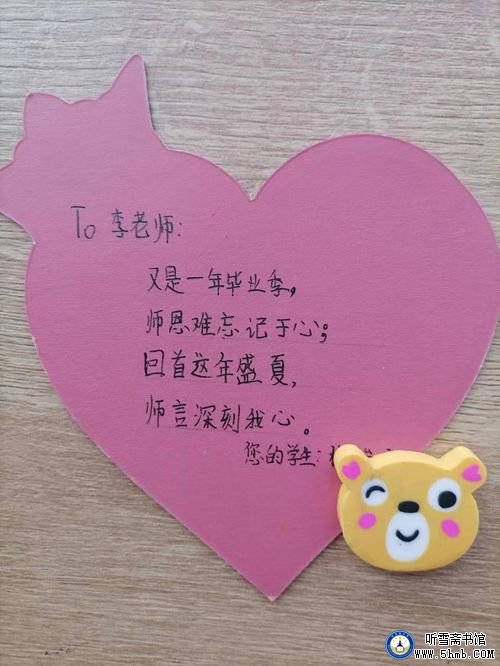 To 李老师:
又是一年毕业季,
师恩难忘记于心;
回首这年盛夏,
师言深刻我心。
您的学生:
听雪斋书馆
www.5hmb.com